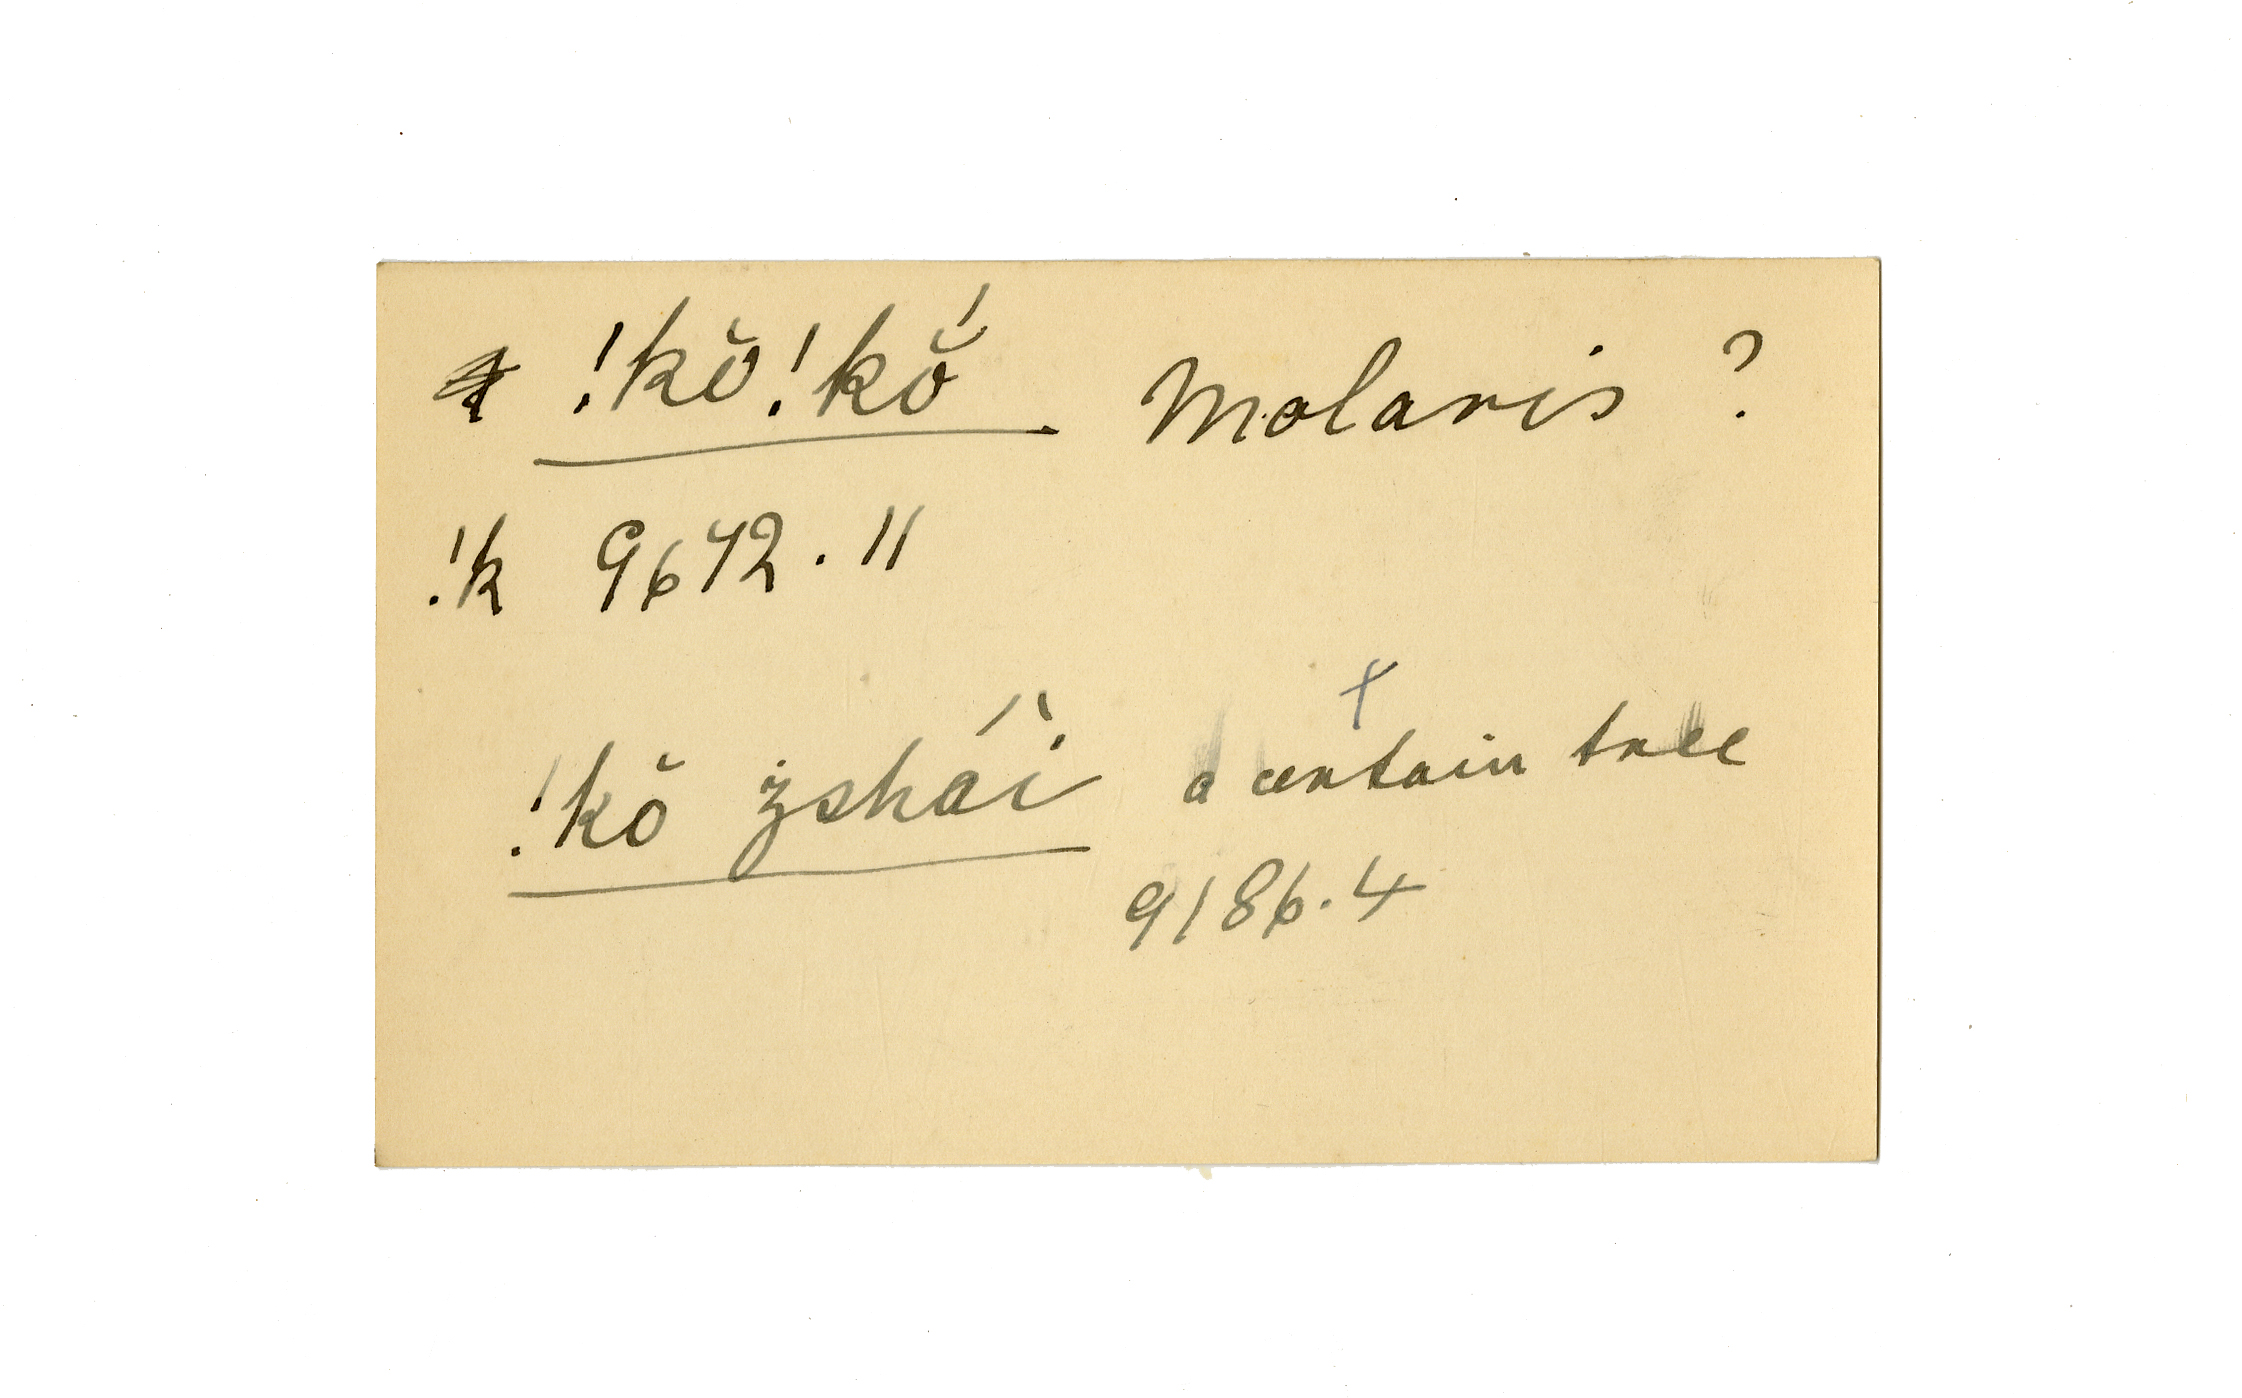 !kŏ!kŏ́ Molaris ?
!k 9672.11
!kŏ żshái a certain tree
9186.4